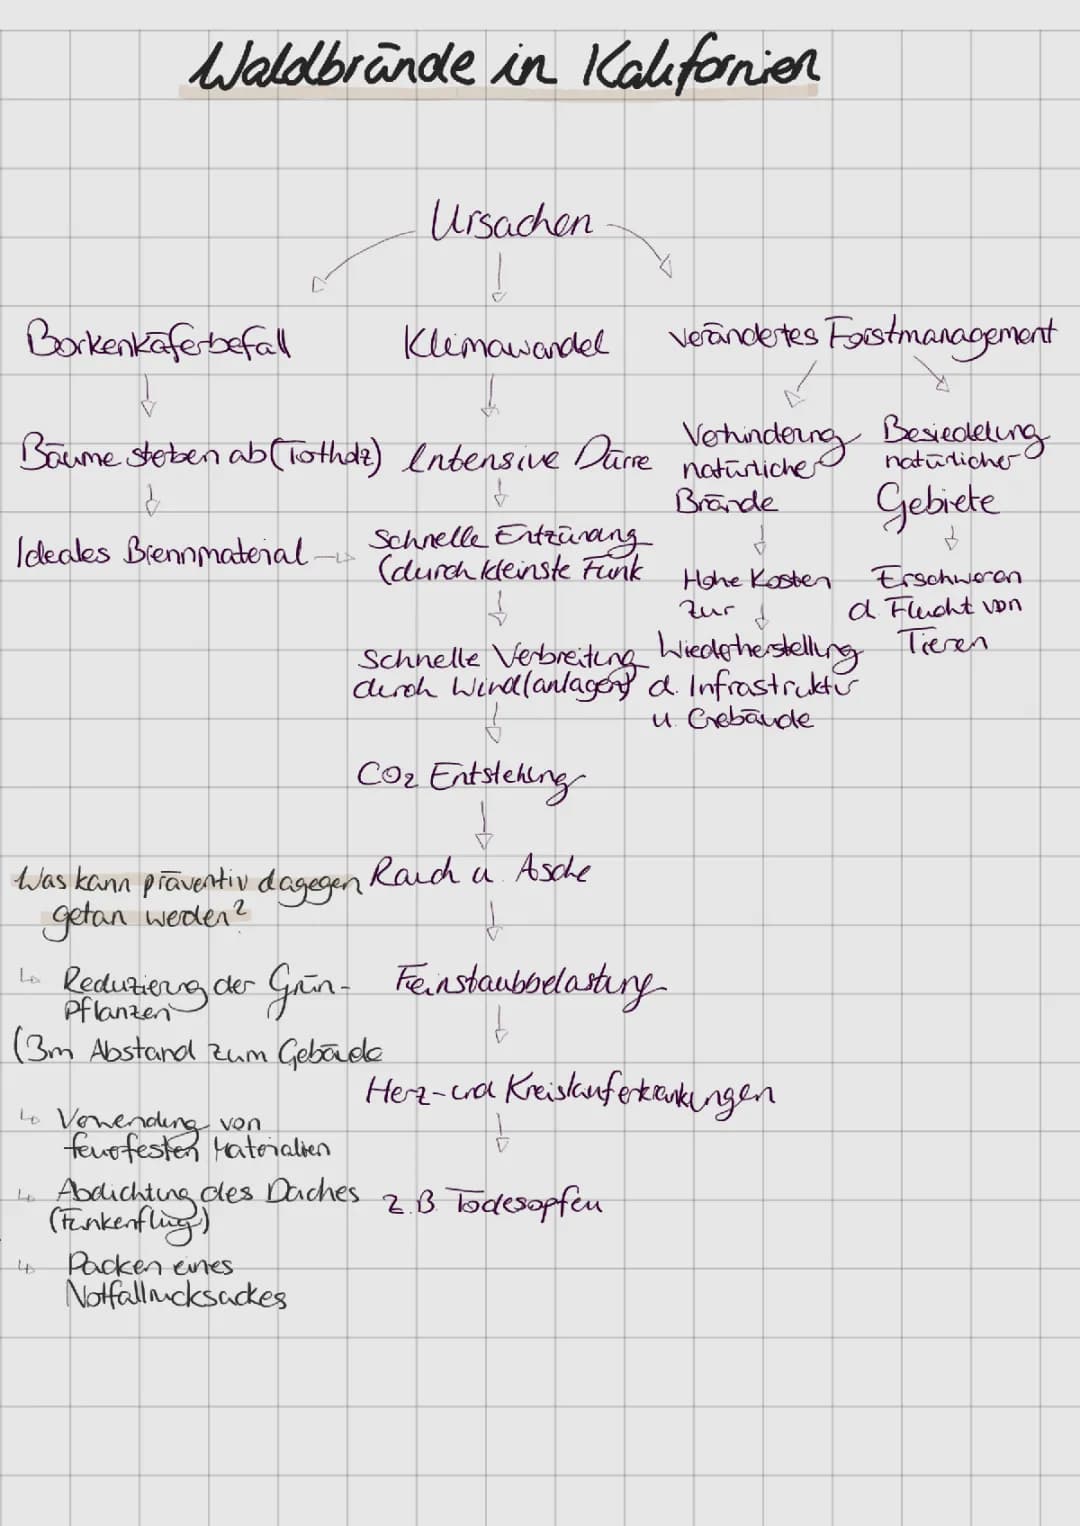 Waldbrände in Kalifornien
Ursachen
Borkenkäferbefall
Bäume steben ab (Totholz)
Ideales Brennmaterial
Klimawandel
Intensive Dürre
Schnelle Entzünang
(durch kleinste Funk
Schnelle Verbreitung
durch Wind(anlagen)
CO2 Entstehung
Rauch u. Asche
Feinstaubbelastung
Herz-und Kreislauferkrankungen
z.B. Todesopfer
verändertes Forstmanagement
Verhinderung
natürlicher
Brände
Hohe Kosten
zur
Wiederherstellung
d. Infrastruktur
u. Gebäude
Besiedelung
natürlicher
Gebiete
Erschweren
d. Flucht von
Tieren
Was kann präventiv dagegen
getan werden?
↳ Reduzierung der Grün-
Pflanzen
(3m Abstand zum Gebäude
↳ Verwendung von
feuerfesten Materialien
↳ Abdichtung des Daches
(Funkenflug)
↳ Packen eines
Notfallrucksackes